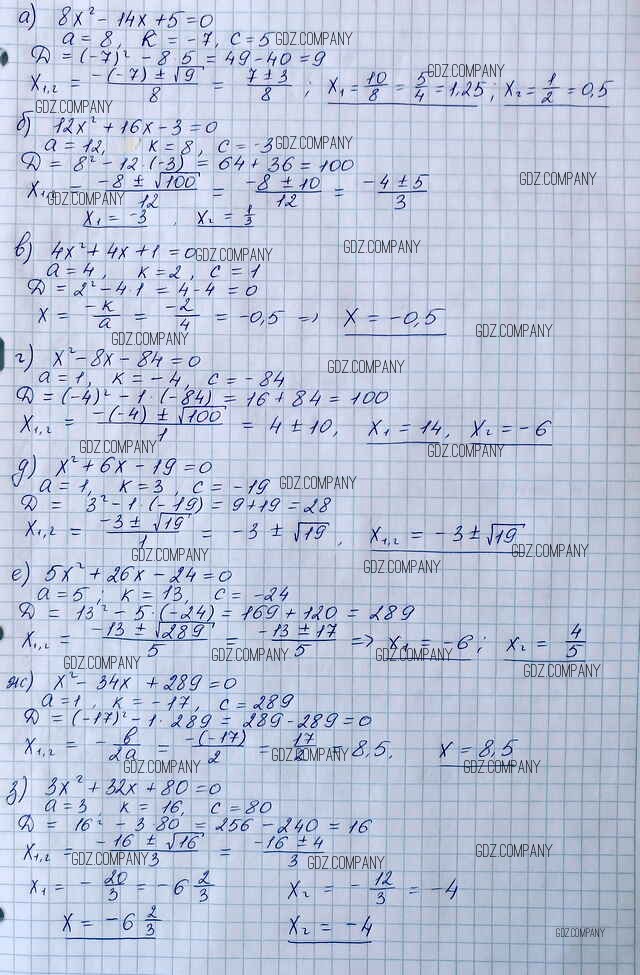 а) 8x² - 14x + 5 = 0
a = 8, к = -7, c = 5 GDZ.COMPANY
Д = (-7)² - 8·5 = 49 - 40 = 9
x₁,₂ = (-(-7) ± √9)/8 = (7 ± 3)/8 ; x₁ = 10/8 = 5/4 = 1,25 ; x₂ = 1/2 = 0,5 GDZ.COMPANY
GDZ.COMPANY
б) 12x² + 16x - 3 = 0
a = 12, к = 8, c = -3 GDZ.COMPANY
Д = 8² - 12·(-3) = 64 + 36 = 100
x₁,₂ = (-8 ± √100)/12 = (-8 ± 10)/12 = (-4 ± 5)/3 GDZ.COMPANY
GDZ.COMPANY
x₁ = -3, x₂ = 1/3
в) 4x² + 4x + 1 = 0 GDZ.COMPANY GDZ.COMPANY
a = 4, к = 2, c = 1
Д = 2² - 4·1 = 4 - 4 = 0
x = -к/a = -2/4 = -0,5 => x = -0,5 GDZ.COMPANY
GDZ.COMPANY
г) x² - 8x - 84 = 0 GDZ.COMPANY
a = 1, к = -4, c = -84
Д = (-4)² - 1·(-84) = 16 + 84 = 100
x₁,₂ = (-(-4) ± √100)/1 = 4 ± 10, x₁ = 14, x₂ = -6
GDZ.COMPANY GDZ.COMPANY
д) x² + 6x - 19 = 0
a = 1, к = 3, c = -19 GDZ.COMPANY
Д = 3² - 1·(-19) = 9 + 19 = 28
x₁,₂ = (-3 ± √19)/1 = -3 ± √19, x₁,₂ = -3 ± √19
GDZ.COMPANY GDZ.COMPANY GDZ.COMPANY
е) 5x² + 26x - 24 = 0
a = 5 ; к = 13, c = -24
Д = 13² - 5·(-24) = 169 + 120 = 289
x₁,₂ = (-13 ± √289)/5 = (-13 ± 17)/5 => x₁ = -6 ; x₂ = 4/5
GDZ.COMPANY GDZ.COMPANY GDZ.COMPANY GDZ.COMPANY
ж) x² - 34x + 289 = 0
a = 1, к = -17, c = 289
Д = (-17)² - 1·289 = 289 - 289 = 0
x₁,₂ = -в/2a = -(-17)/2 = 17/2 = 8,5, x = 8,5
GDZ.COMPANY GDZ.COMPANY GDZ.COMPANY
з) 3x² + 32x + 80 = 0
a = 3, к = 16, c = 80
Д = 16² - 3·80 = 256 - 240 = 16
x₁,₂ = (-16 ± √16)/3 = (-16 ± 4)/3 GDZ.COMPANY
GDZ.COMPANY GDZ.COMPANY
x₁ = -20/3 = -6 2/3 x₂ = -12/3 = -4
x = -6 2/3 x₂ = -4
GDZ.COMPANY